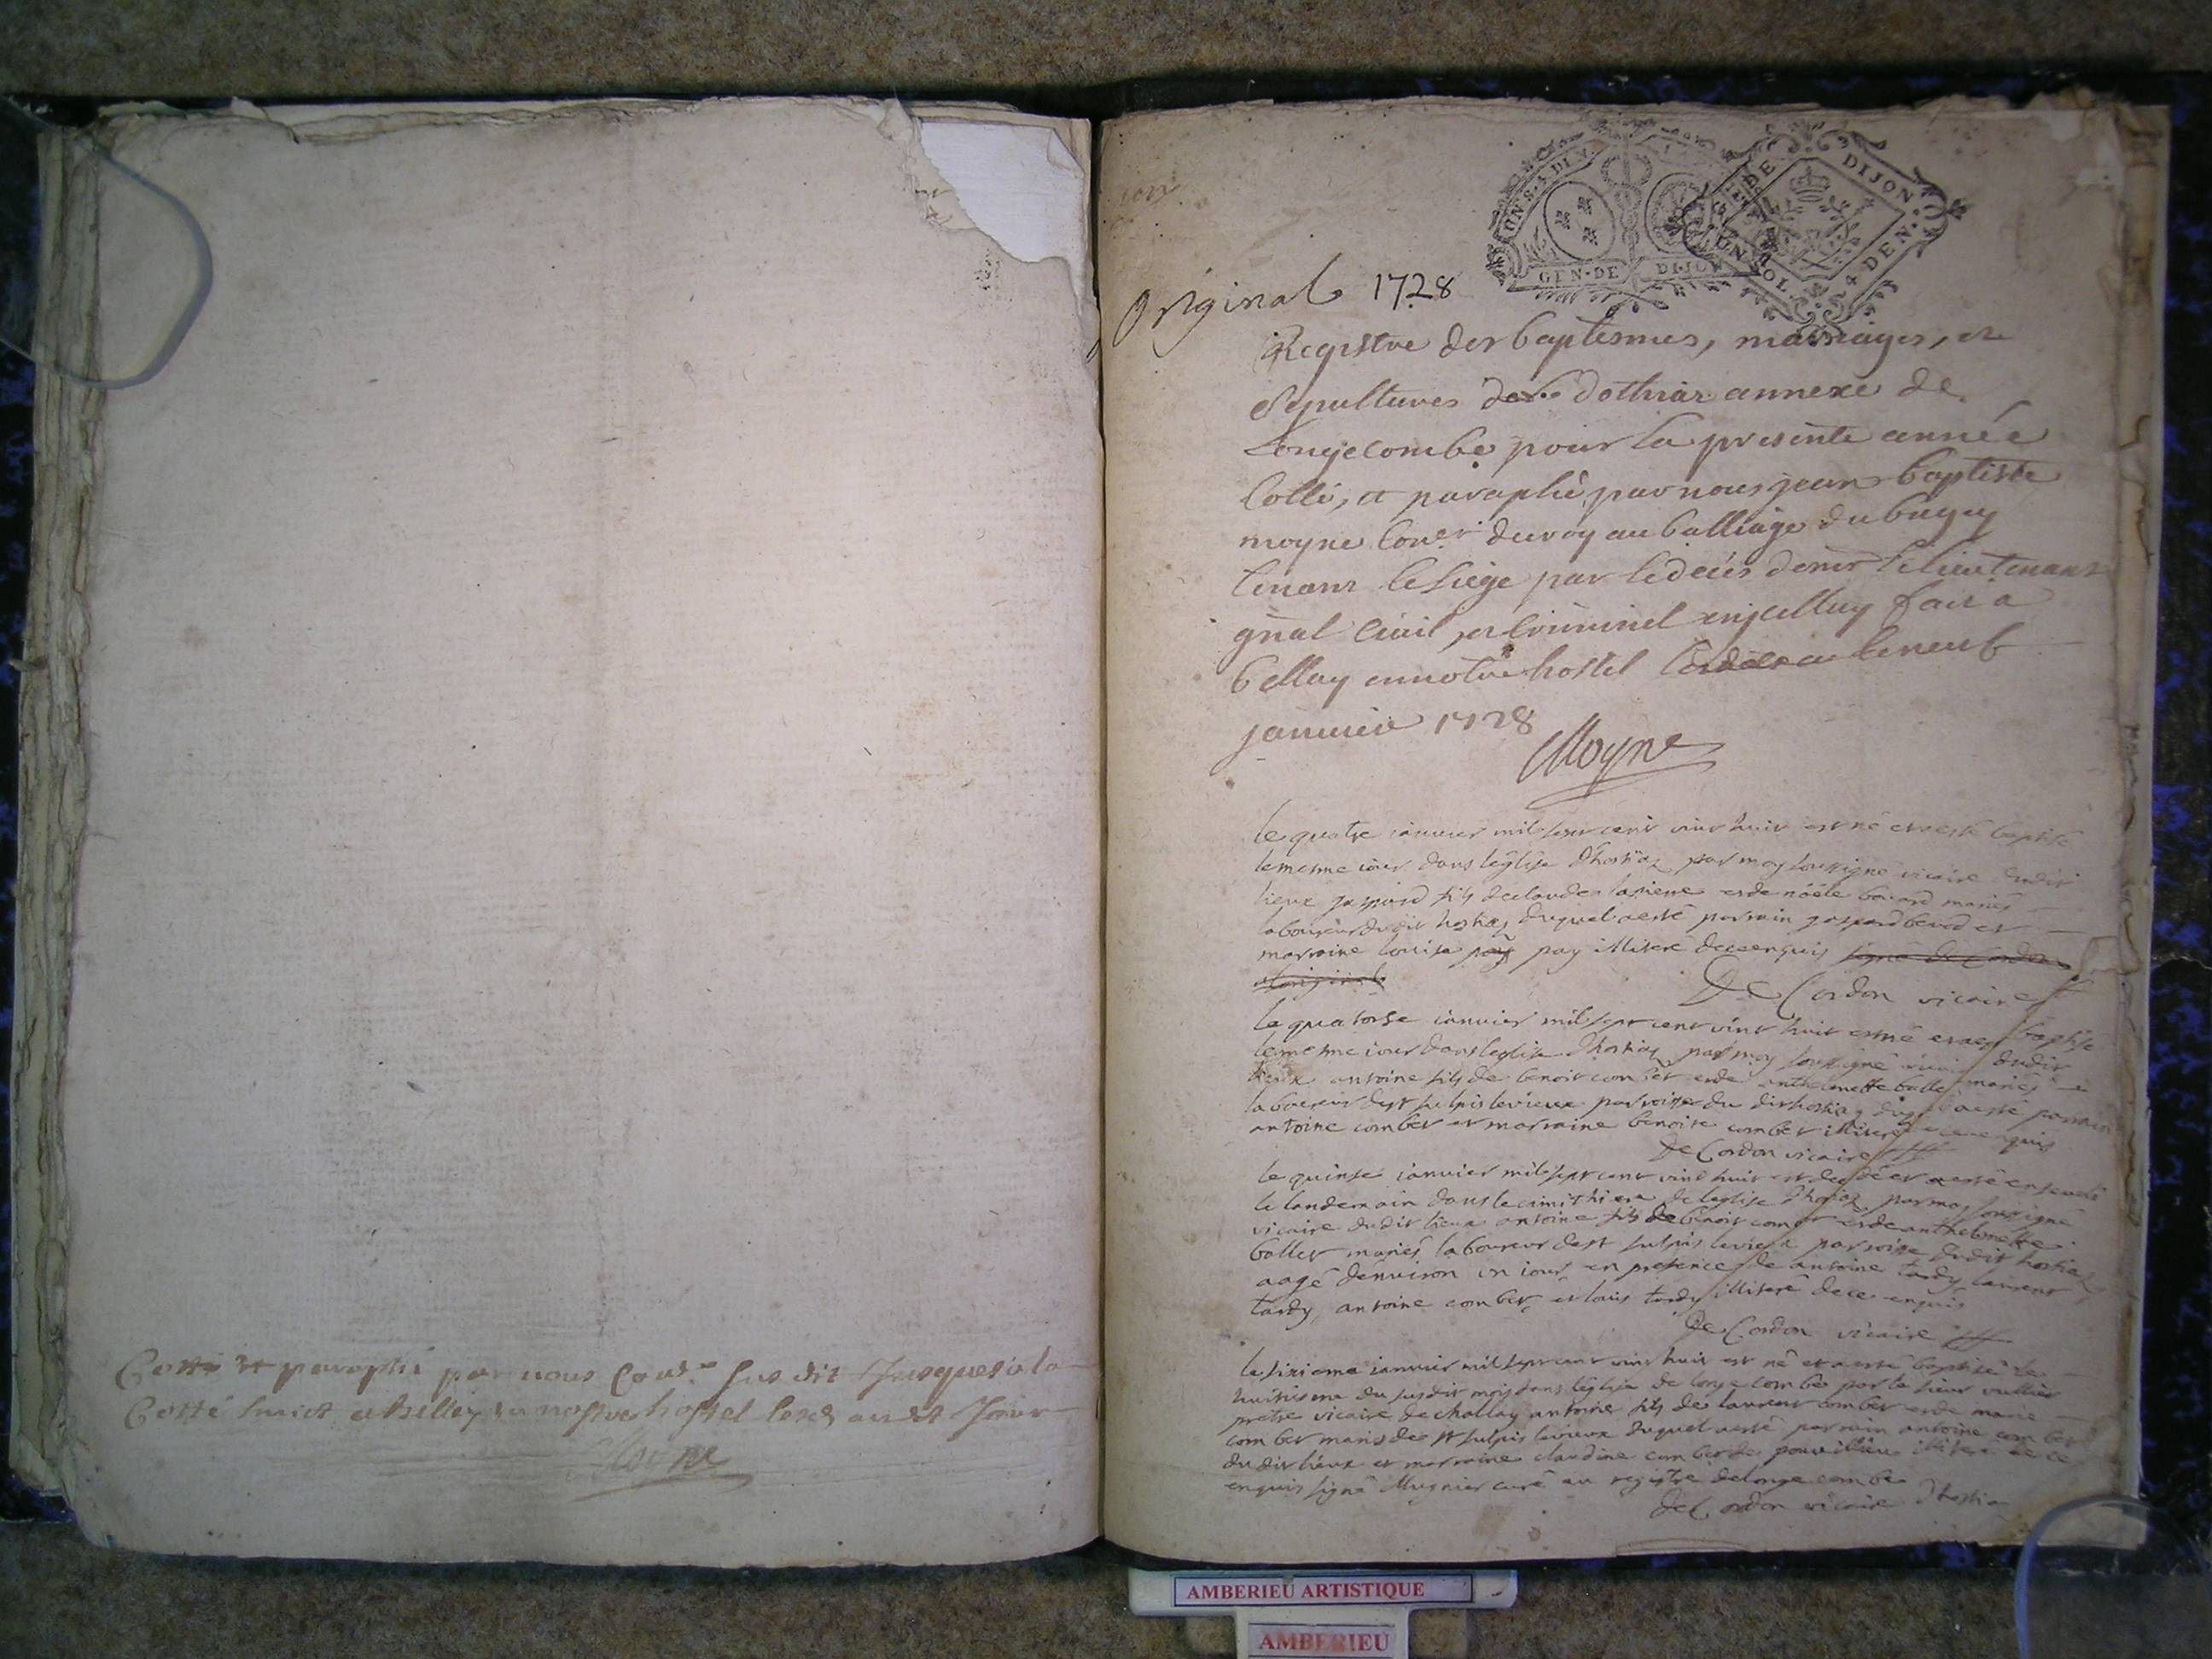 Cotté et paraphé par nous Cons.er susdit Jusques a la
Cotté huict a belley en nostre hostel lesd. an et Jour
Moyne
Original 1728
GEN·DE DIJON
DE DIJON
UN SOL 4 DEN.
Registre des baptesmes, mariages, et
Sepultures dothiaz annexe de
Longecombe pour la presente année
Cotté, et paraphé, par nous jean baptiste
moyne Con.er du roy au balliage du bugey
tenant le siege par le decès de mr le lieutenant
gnal Civil, et Criminel enjcelluy fait a
bellay en notre hostel le neuf
januier 1728
Moyne
le quatre ianuier mil sept cent vint huit est né et a esté baptisé
le mesme iour dans léglise dhostiaz par moy soussigné vicaire dudit
lieux gaspard fils de claude lapierre et de nöéle bouard mariés
laboureur dudit hostiaz duquel a esté parrain gaspard et
marraine louise pay illiteré de ce enquis signé de Cordon
a loriginal
De Cordon vicaire
le quatorse ianuier mil sept cent vint huit est né et a esté baptisé
le mesme iour dans leglise dhostiaz par moy soussigné vicaire dudit
lieux antoine fils de benoit combet et de anthelmette ballet mariés
laboureur de st sulpis levieux parroisse du dit hostiaz duquel a esté parrain
antoine combet et marraine benoite combet illiteré de ce enquis
De Cordon vicaire
le quinse ianuier mil sept cent vint huit est decedé et a esté enseveli
le landemain dans le cimithiere de leglise dhostiaz par moy soussigné
vicaire dudit lieux antoine fils de benoit combet et de anthelmette
ballet mariés laboureur de st sulpis levieux parroisse dudit hostiaz
aagé denuiron un iour en presence de antoine tardy laurent
tardy antoine combet et louis tardy illiteré de ce enquis
De Cordon vicaire
le sixieme ianuier mil sept cent vint huit est né et a esté baptisé le
huitieme du susdit mois dans léglise de longecombe par le sieur vullier
pretre vicaire de challay antoine fils de laurent combet et de marie
combet mariés de st sulpis levieux duquel a esté parrain antoine combet
du dit lieux et marraine claudine combet de pouuillieu illiteré de ce
enquis signé Mugnier curé au registre de longecombe
De Cordon vicaire dhostia
AMBERIEU ARTISTIQUE
AMBERIEU